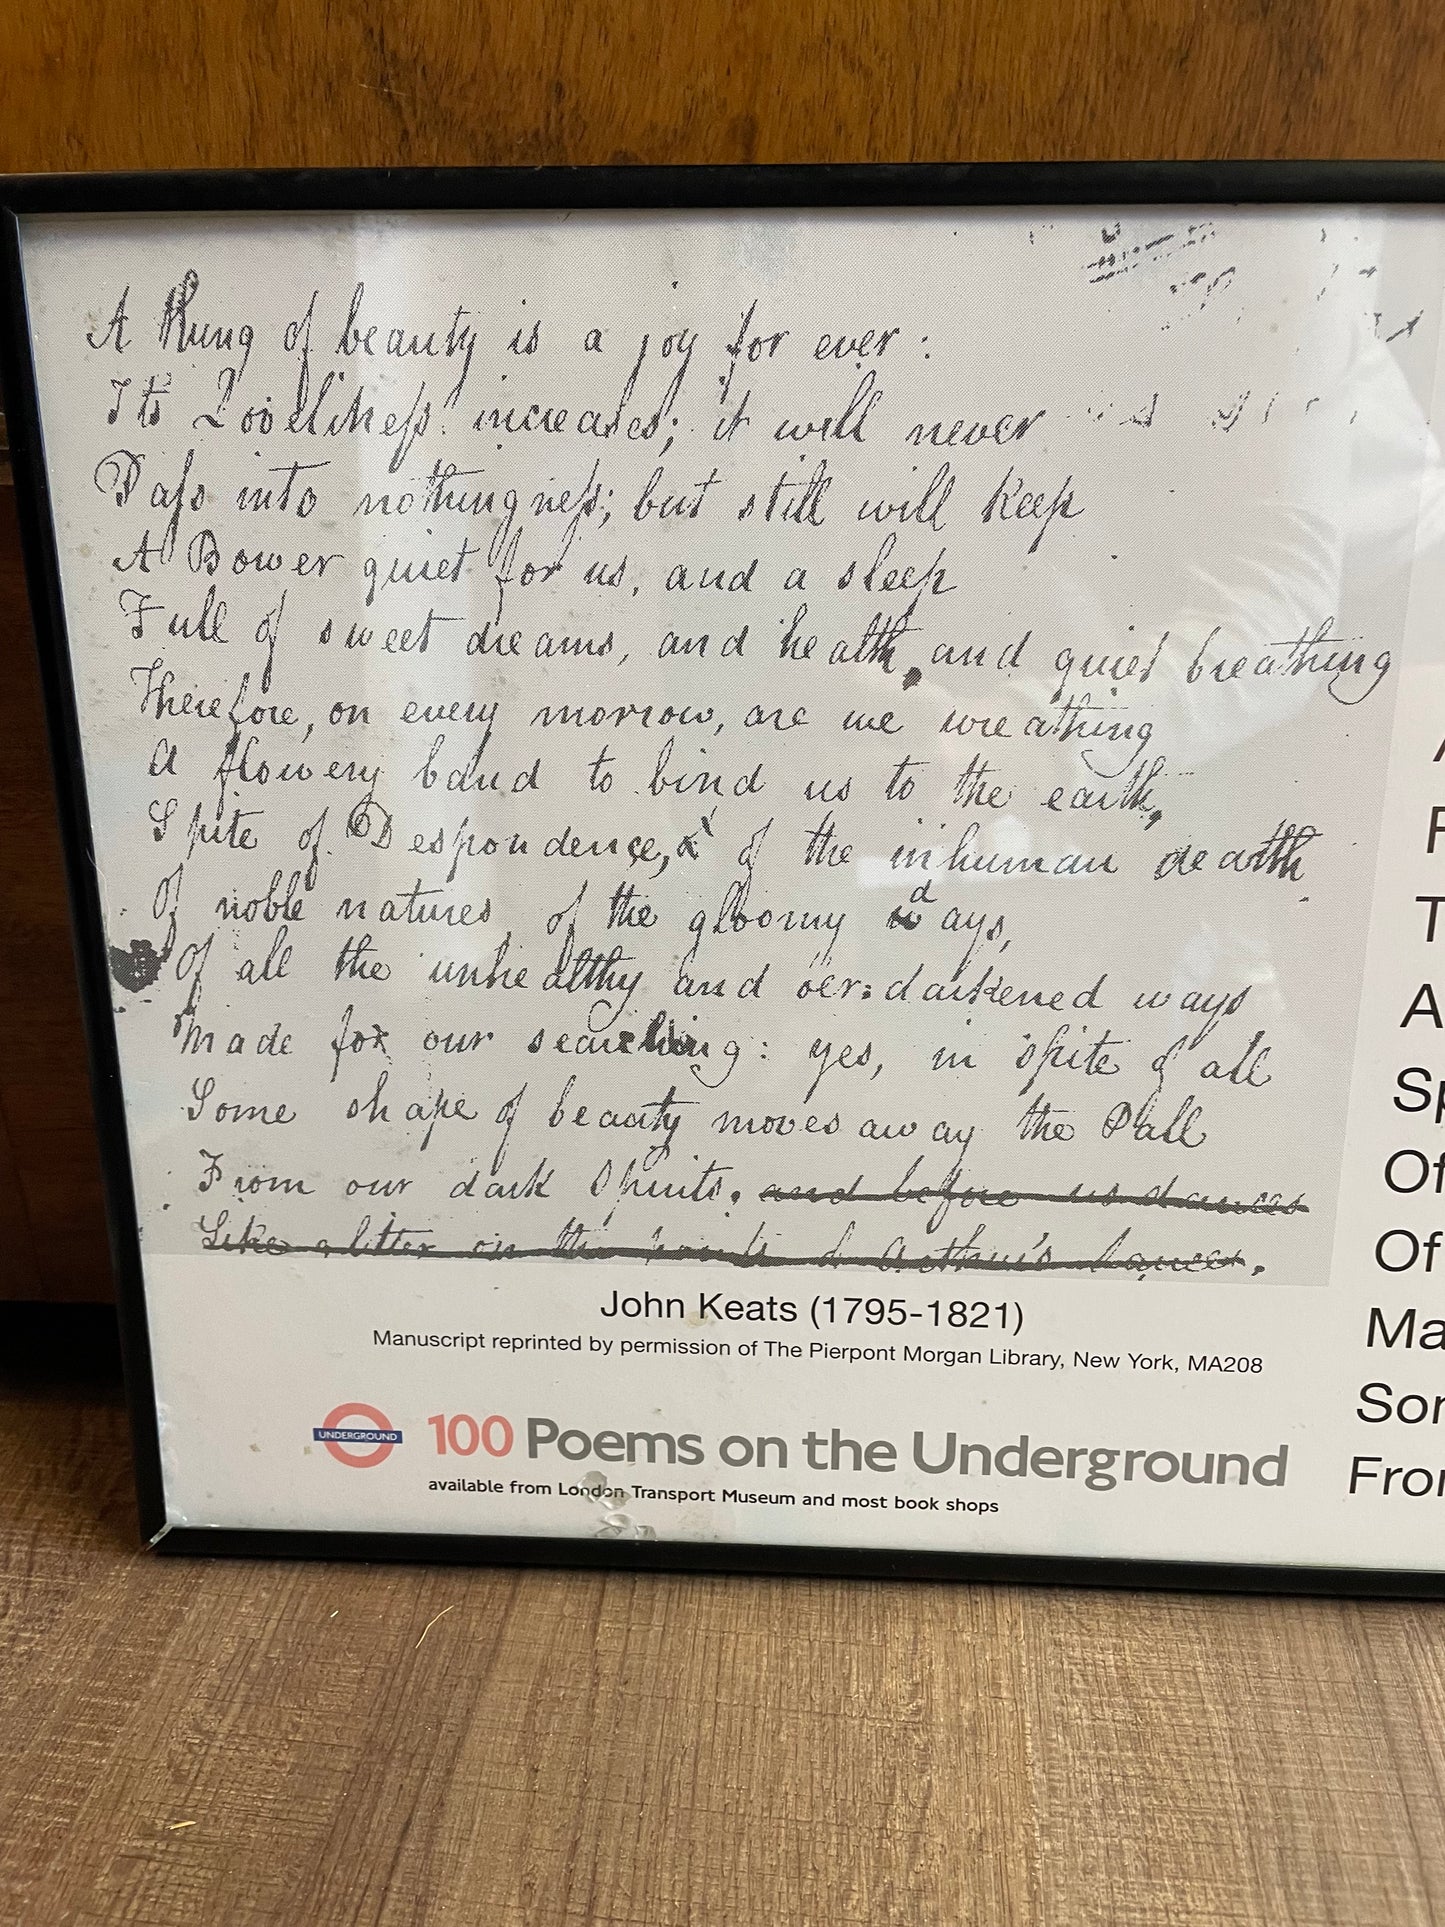 A thing of beauty is a joy for ever:
Its Loveliness increases; it will never
Pass into nothingness; but still will keep
A Bower quiet for us, and a sleep
Full of sweet dreams, and health, and quiet breathing
Therefore, on every morrow, are we wreathing
A flowery band to bind us to the earth,
Spite of Despondence, of the inhuman dearth
Of noble natures, of the gloomy days,
Of all the unhealthy and o'er-darkened ways
Made for our searching: yes, in spite of all
Some shape of beauty moves away the Pall
From our dark Spirits. and before us dances
Like glitter on the points of Arthur's lances.
John Keats (1795-1821)
Manuscript reprinted by permission of The Pierpont Morgan Library, New York, MA208
UNDERGROUND
100 Poems on the Underground
available from London Transport Museum and most book shops
A
F
T
A
Sp
Of
Of
Ma
Som
From